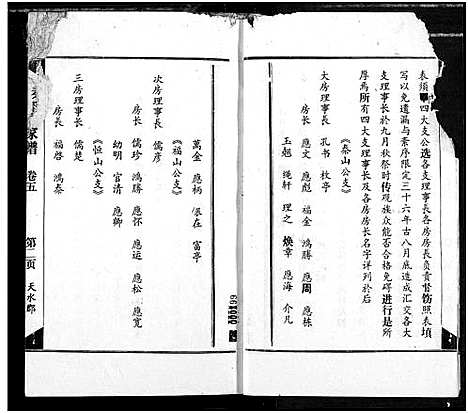 表须
四大支公选各支理事长各房房长负责督饬照表填
写以免遗漏与紊序限定三十六年古八月底造成汇交各大
支理事长於九月秋祭时传观族众能否合格免碍进行是所
厚焉所有四大支理事长及各房房长名字详列於后
《泰山公支》
大房理事长 孔书 枚亭
房长 应文 应彪 福金 鸿胜 应周 应栋
玉魁 绳轩 理之 焕章 应海 介凡
万金 应柄 保在 富亭
《福山公支》
次房理事长 儒彦
房长 儒珍 鸿胜 应怀 应运 应松 应宽
幼明 官清 应卿
《恒山公支》
三房理事长 儒楚
房长 福启 鸿泰
家谱 卷五 第二页 天水郡